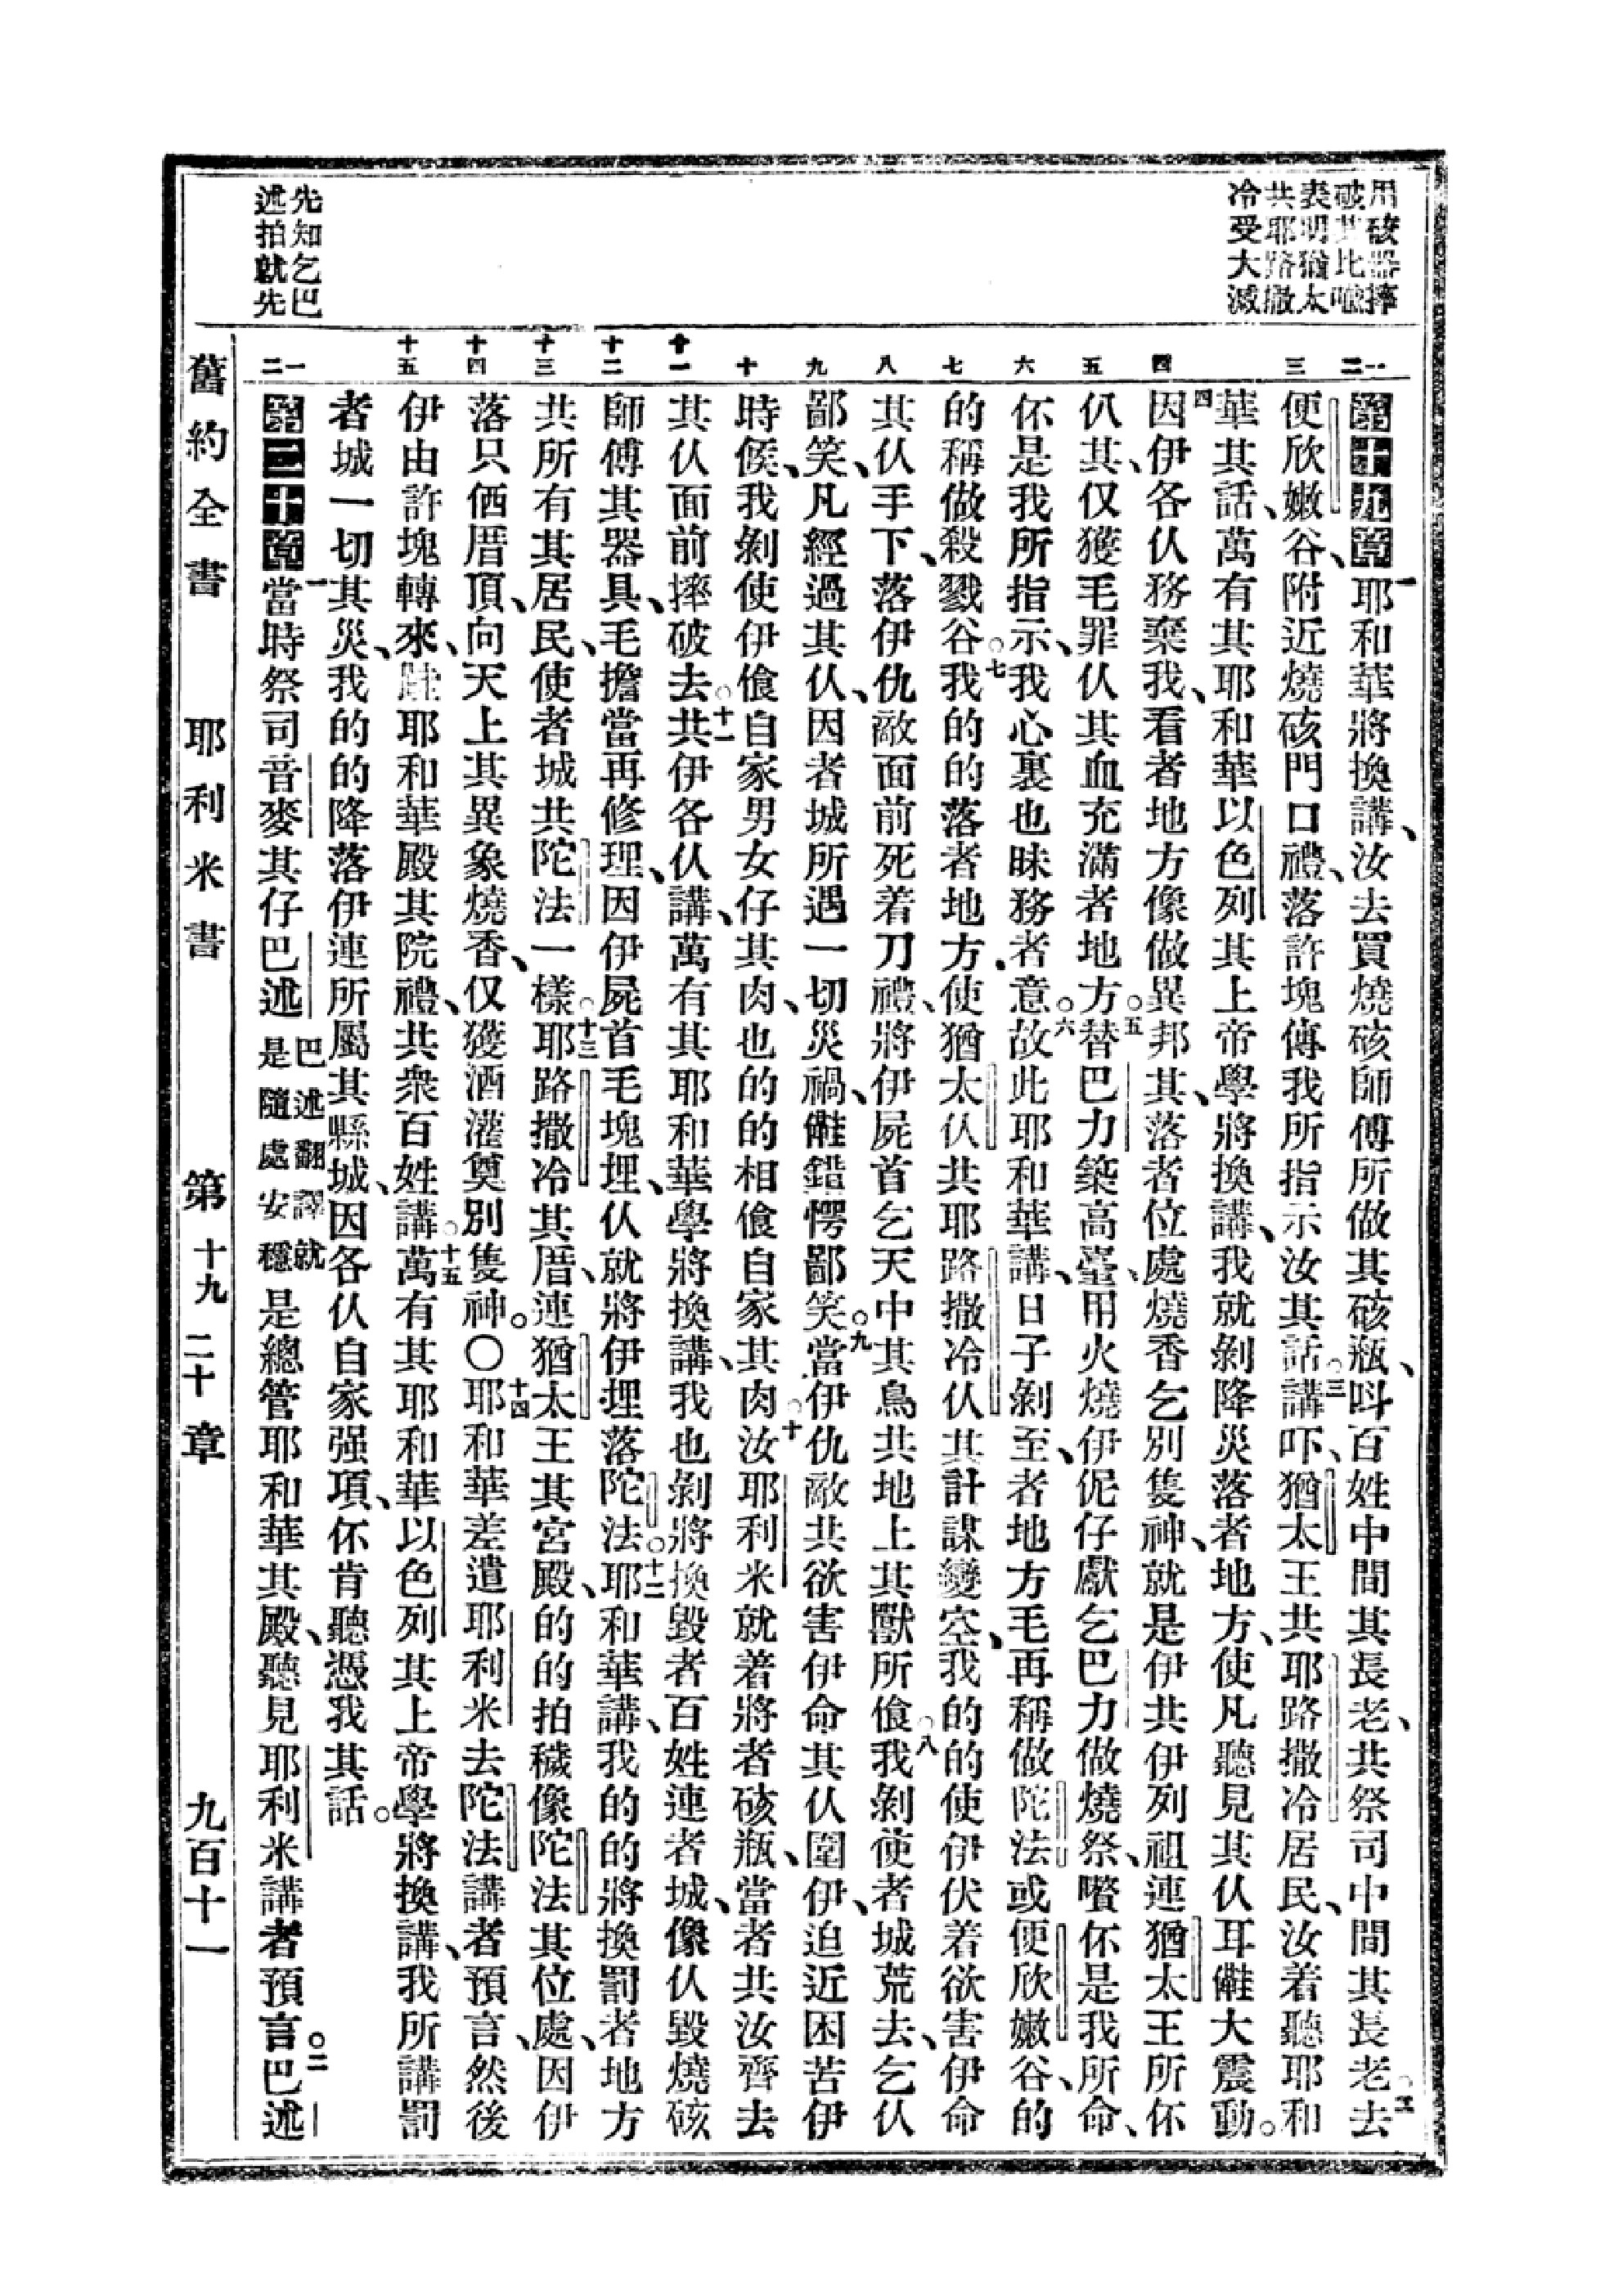 用硋器摔
破其比喻
表明猶太
共耶路撒
冷受大滅
先知乞巴
述拍就先
一
二
三
四
五
六
七
八
九
十
十一
十二
十三
十四
十五
一
二
第十九章一耶和華將換講、汝去買燒硋師傅所做其硋瓶、呌百姓中間其長老、共祭司中間其長老去○二
便欣嫩谷、附近燒硋門口禮、落許塊傳我所指示汝其話○三講吓、猶太王共耶路撒冷居民、汝着聽耶和
華其話、萬有其耶和華以色列其上帝學將換講、我就剝降災落者地方、使凡聽見其仈耳𩫤大震動。
四因伊各仈務棄我、看者地方像做異邦其、落者位處燒香乞別隻神、就是伊共伊列祖連猶太王所伓
仈其、仅獲毛罪仈其血充滿者地方○五替巴力築高臺、用火燒伊伲仔獻乞巴力做燒祭、嘹伓是我所命、
伓是我所指示、我心裏也昧務者意○六故此耶和華講、日子剝至、者地方毛再稱做陀法或便欣嫩谷、的
的稱做殺戮谷○七我的的落者地方、使猶太仈共耶路撒冷仈其計謀變空、我的的使伊伏着欲害伊命
其仈手下、落伊仇敵面前死着刀禮、將伊屍首乞天中其鳥共地上其獸所飡○八我剝使者城荒去、乞仈
鄙笑、凡經過其仈、因者城所遇一切災禍、𩫤錯愕鄙笑○九當伊仇敵共欲害伊命其仈圍伊、迫近困苦伊
時候、我剝使伊飡自家男女仔其肉、也的的相飡自家其肉○十汝耶利米就着將者硋瓶、當者共汝齊去
其仈面前摔破去○十一共伊各仈講、萬有其耶和華學將換講、我也剝將換毀者百姓連者城、像仈毀燒硋
師傅其器具、毛擔當再修理、因伊屍首毛塊埋、仈就將伊埋落陀法○十二耶和華講、我的的將換罰者地方
共所有其居民、使者城共陀法一樣○十三耶路撒冷其厝、連猶太王其宮殿、的的拍穢像陀法其位處、因伊
落只価厝頂、向天上其異象燒香、仅獲酒灌奠別隻神。○十四耶和華差遣耶利米去陀法講者預言、然後
伊由許塊轉來、𨂿耶和華殿其院禮、共衆百姓講○十五萬有其耶和華以色列其上帝學將換講、我所講罰
者城一切其災、我的的降落伊連所屬其縣城、因各仈自家强項、伓肯聽憑我其話。
第二十章一當時祭司音麥其仔巴述巴述翻譯就是隨處安穩是總管耶和華其殿、聽見耶利米講者預言○二巴述
舊約全書　耶利米書　第十九二十章　九百十一